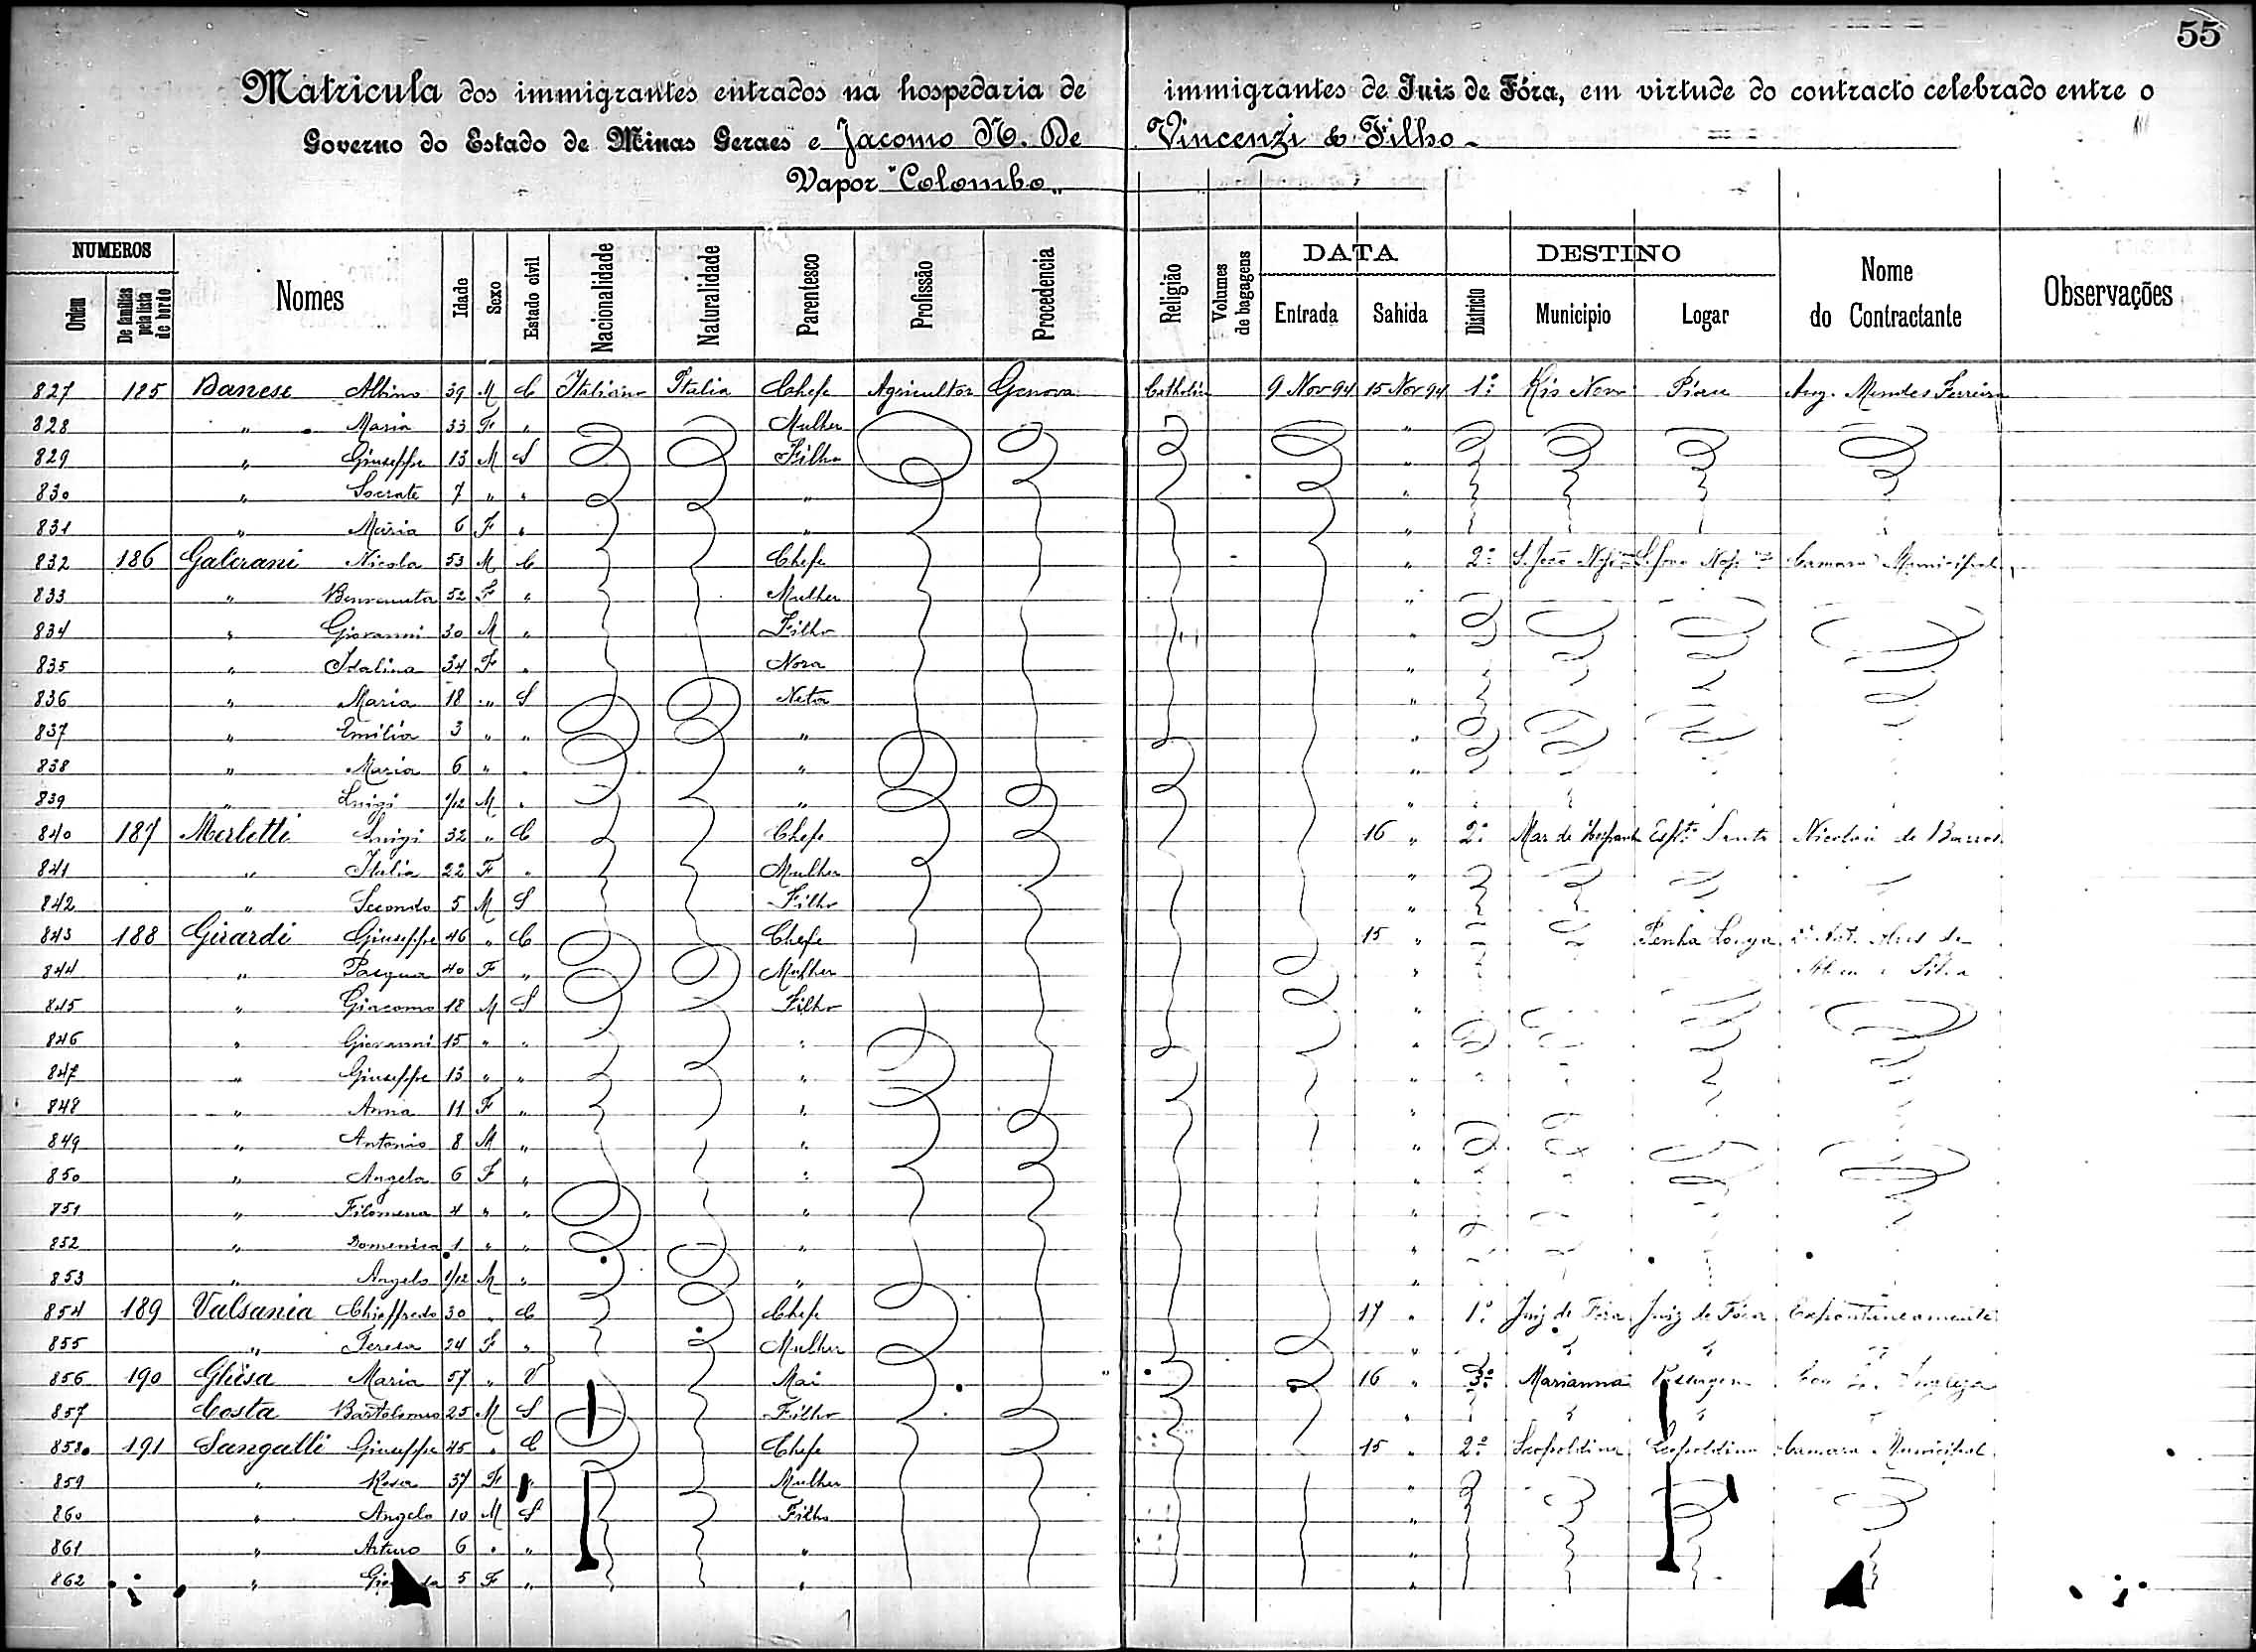 55
Matricula dos immigrantes entrados na hospedaria de immigrantes de Juiz de Fóra, em virtude do contracto celebrado entre o
Governo do Estado de Minas Geraes e Jacomo N. De Vincenzi & Filho
Vapor "Colombo"
NUMEROS Nomes Idade Sexo Estado civil Nacionalidade Naturalidade Parentesco Profissão Procedencia Religião Volumes de bagagens DATA DESTINO Nome do Contractante Observações
Ordem De familias pela lista de bordo Entrada Sahida Districto Municipio Logar
827 185 Danese Albino 39 M C Italiano Italia Chefe Agricultor Genova Catholica 9 Nov 94 15 Nov 94 1º Rio Novo Piau Aug. Mendes Ferreira
828 " Maria 33 F " Mulher "
829 " Giuseppe 13 M S Filho "
830 " Socrate 7 " " " "
831 " Maria 6 F " " "
832 186 Galerani Nicola 53 M C Chefe " 2º S. João Nep. S. João Nep. Camara Municipal
833 " Benvenuta 52 F " Mulher "
834 " Giovanni 30 M " Filho "
835 " Idalina 34 F " Nora "
836 " Maria 18 " S Neta "
837 " Emilia 3 " " " "
838 " Maria 6 " " " "
839 " Luigi 1/12 M " " "
840 187 Merletti Luigi 32 " C Chefe 16 " 2º Mar de Hespanha Espto Santo Nicolau de Barros
841 " Italia 22 F " Mulher "
842 " Secondo 5 M S Filho "
843 188 Girardi Giuseppe 46 " C Chefe 15 " Penha Longa
844 " Pasqua 40 F " Mulher "
845 " Giacomo 18 M S Filho "
846 " Giovanni 15 " " " "
847 " Giuseppe 13 " " " "
848 " Anna 11 F " " "
849 " Antonio 8 M " " "
850 " Angela 6 F " " "
851 " Filomena 4 " " " "
852 " Domenica 1 " " " "
853 " Angelo 1/12 M " " "
854 189 Valsania Chiaffredo 30 " C Chefe 17 " 1º Juiz de Fóra Juiz de Fóra Expontaneamente
855 " Teresa 24 F " Mulher " " "
856 190 Ghisa Maria 57 " V Mai 16 " 3º Marianna Passagem
857 Costa Bartolomeo 25 M S Filho " " "
858 191 Sangalli Giuseppe 45 " C Chefe 15 " 2º Leopoldina Leopoldina Camara Municipal
859 " Rosa 37 F " Mulher "
860 " Angelo 10 M S Filho "
861 " Arturo 6 " " " "
862 " 5 F " " "